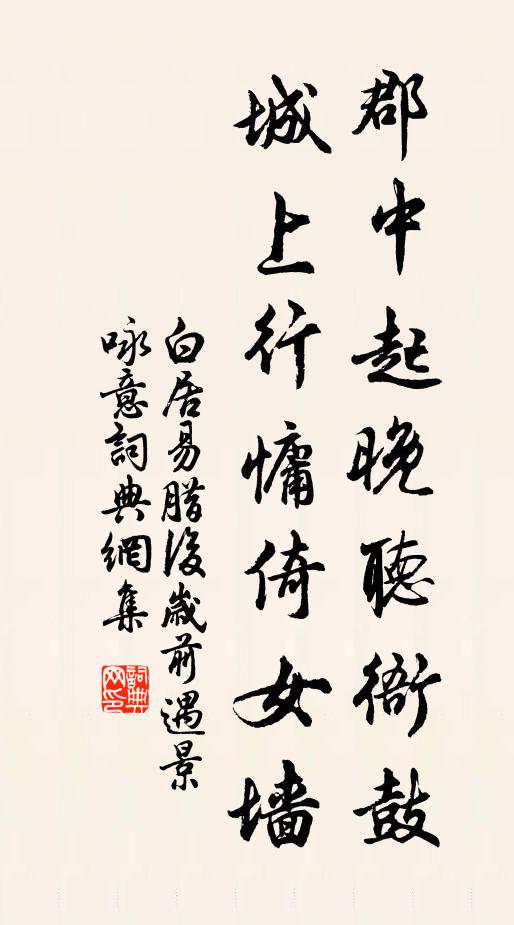 郡中起晚聽衙鼓
城上行慵倚女墻
白居易腊後歲前遇景
咏意詞典網集
詞典
网印